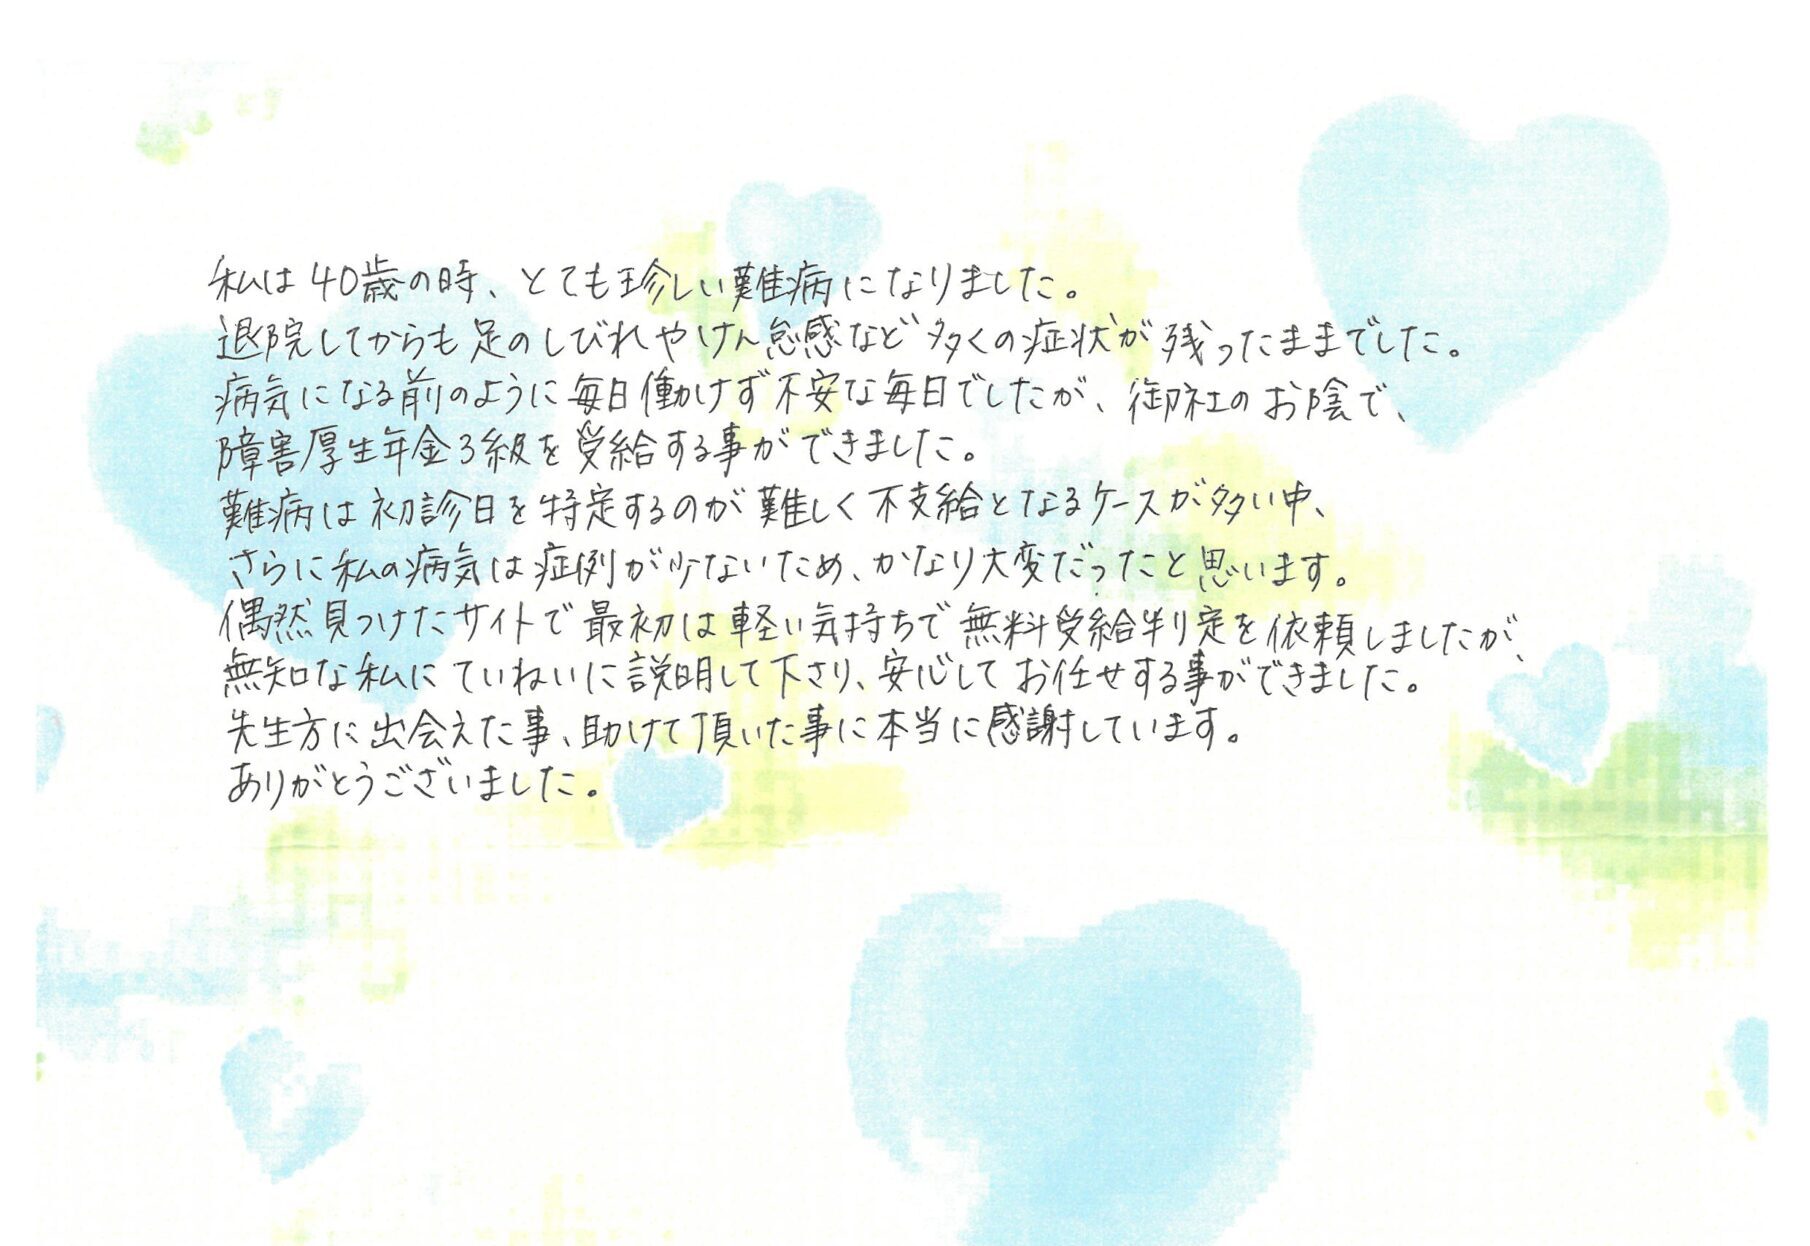 私は40歳の時、とても珍しい難病になりました。
退院してからも足のしびれやけん怠感など多くの症状が残ったままでした。
病気になる前のように毎日働けず不安な毎日でしたが、御社のお陰で、
障害厚生年金3級を受給する事ができました。
難病は初診日を特定するのが難しく不支給となるケースが多い中、
さらに私の病気は症例が少ないため、かなり大変だったと思います。
偶然見つけたサイトで最初は軽い気持ちで無料受給判定を依頼しましたが、
無知な私にていねいに説明して下さり、安心してお任せする事ができました。
先生方に出会えた事、助けて頂いた事に本当に感謝しています。
ありがとうございました。